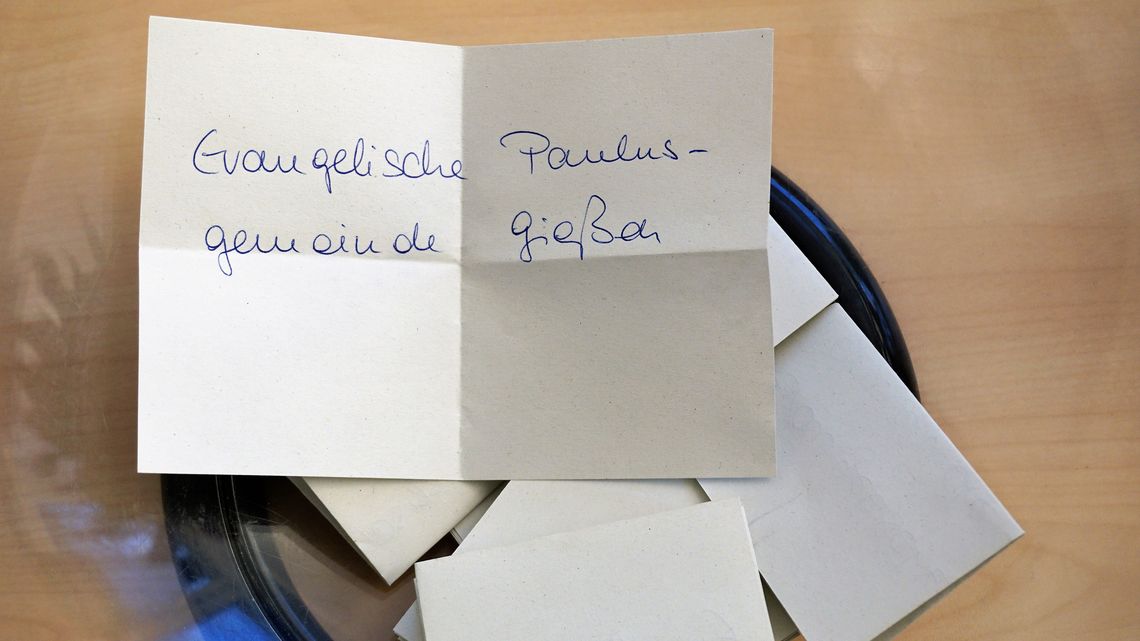 Evangelische Paulus-
gemeinde Gießen